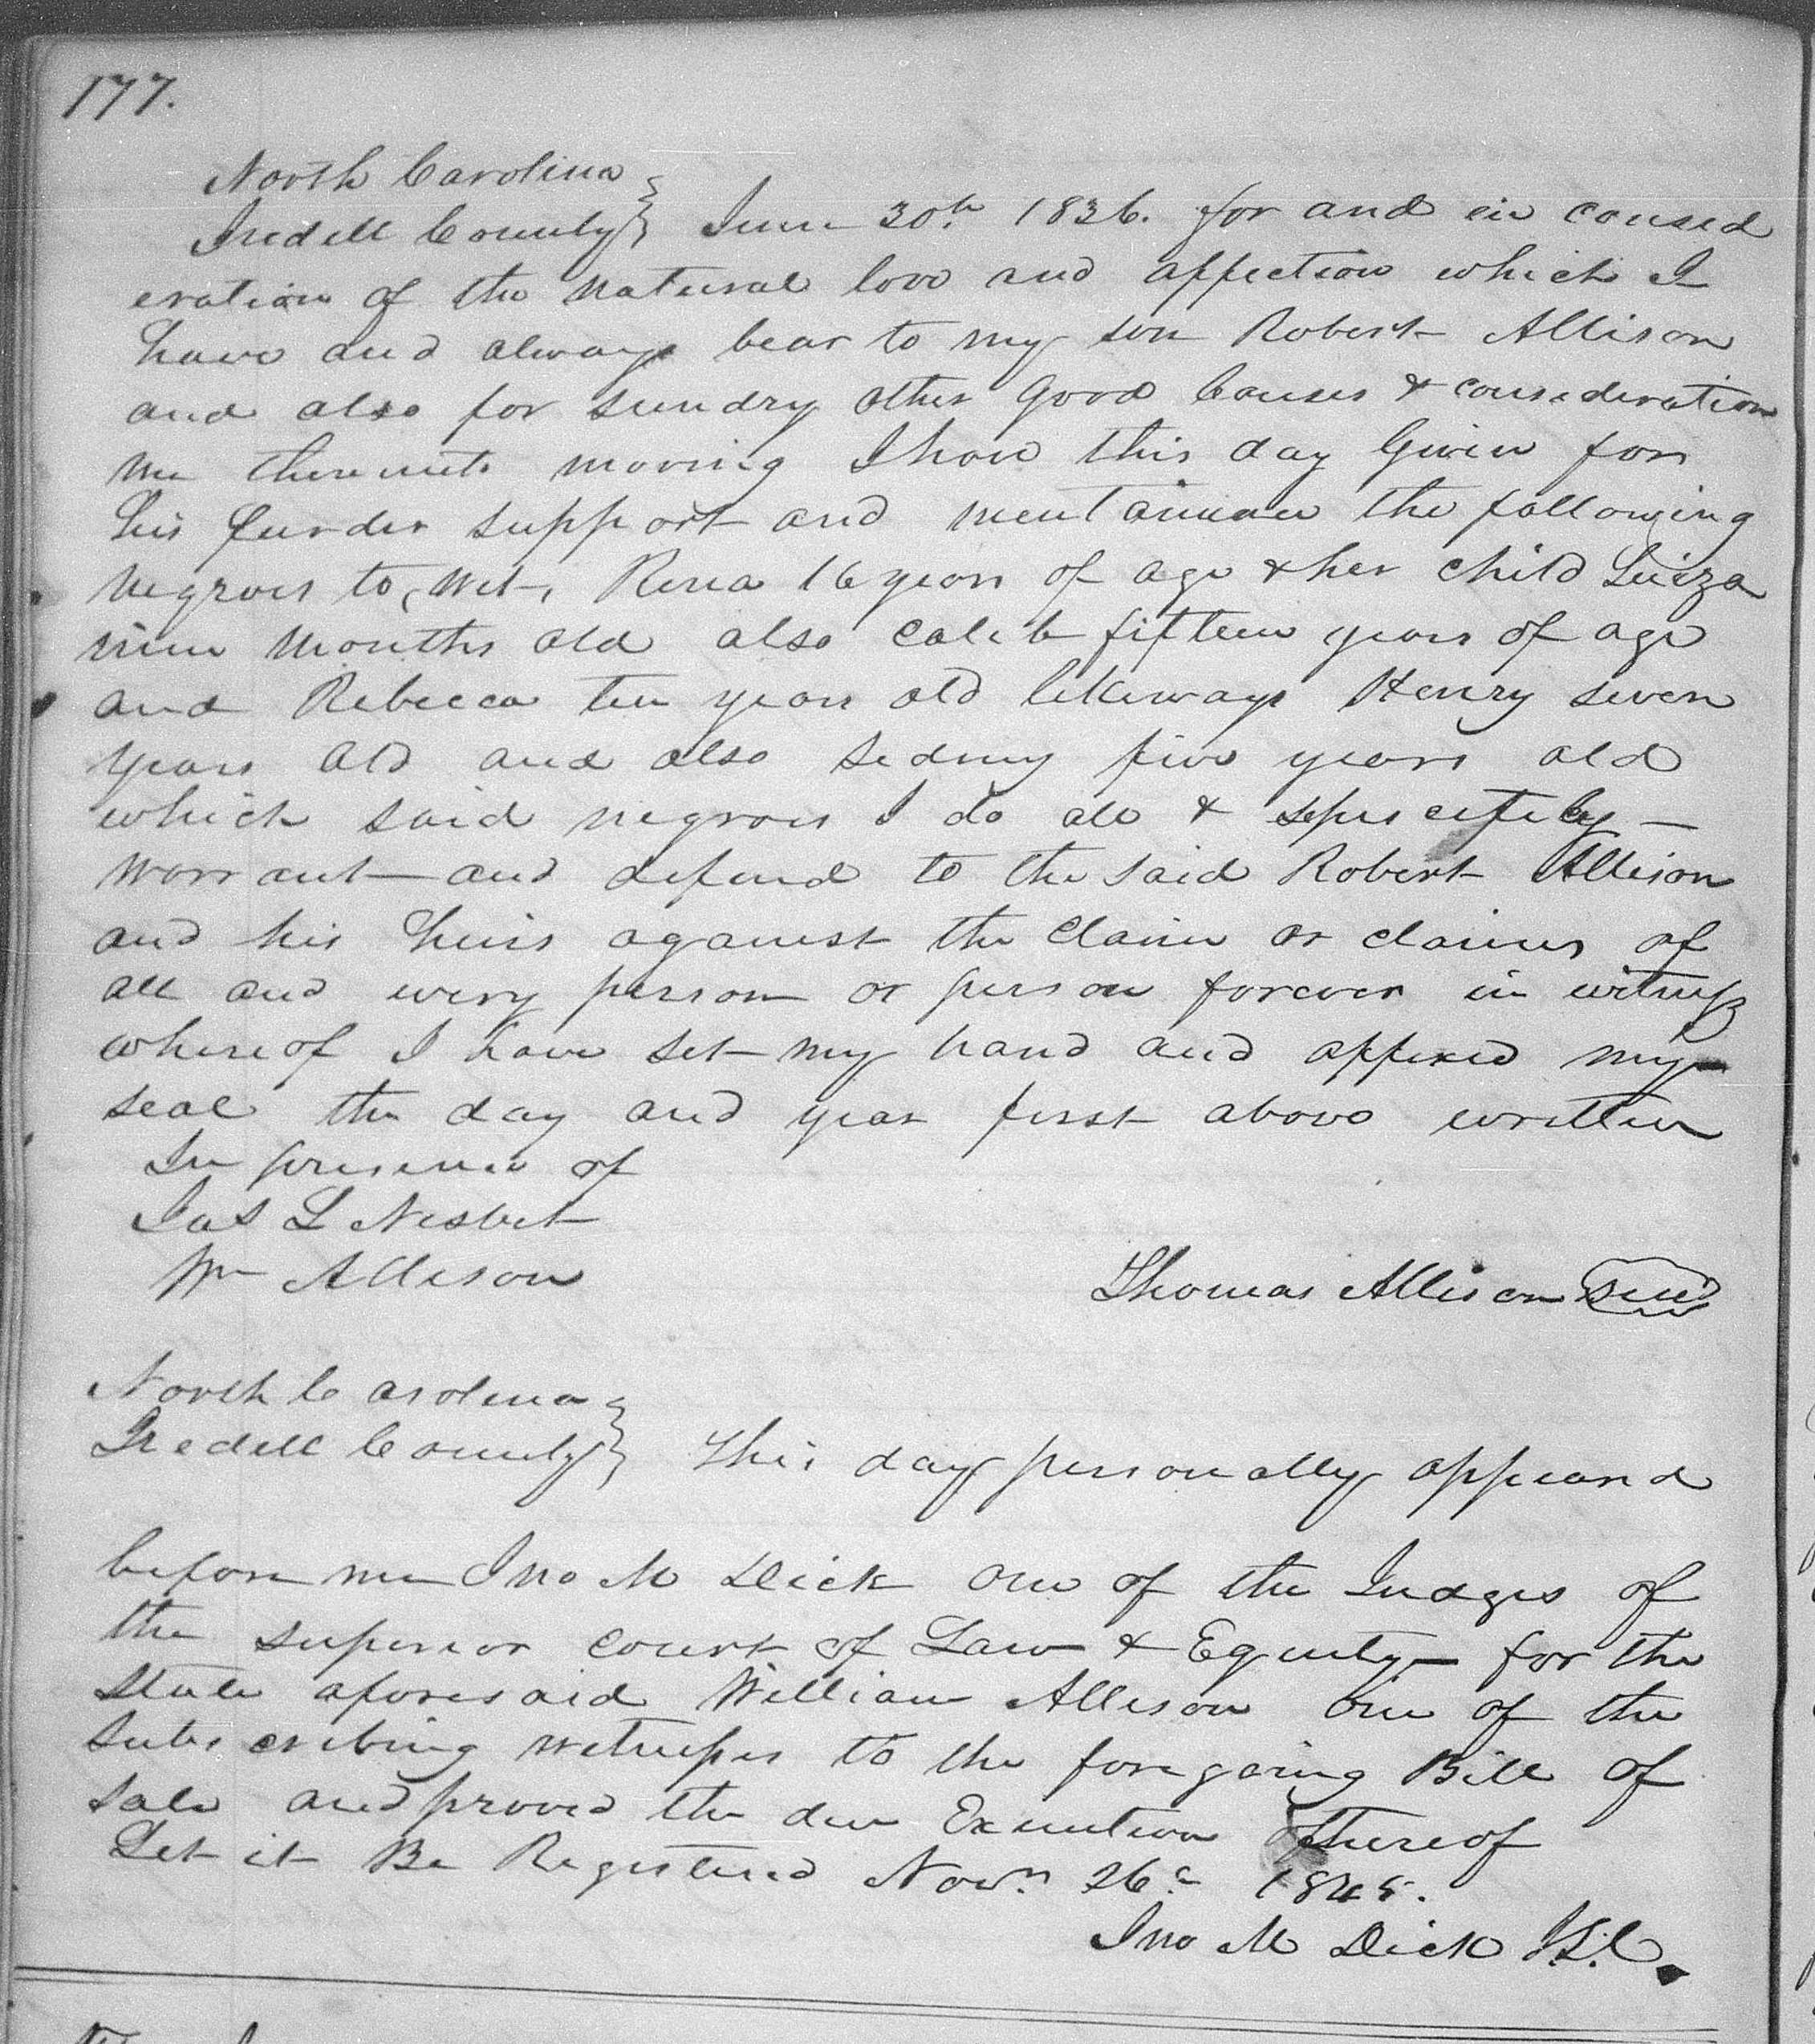 177.
North Carolina
Iredell County } June 30th 1836. for and in consid
eration of the natural love and affection which I
have and always bear to my son Robert Allison
and also for sundry other good Causes & consideration
me thereunto moving I have this day Given for
his furder support and mentainance the following
negroes to, wit, Rena 16 years of age & her child Luiza
nine months old also Caleb fifteen years of age
and Rebecca ten years old likeways Henry seven
years old and also Sedny five years old
which said negroes I do all &
warrant and defend to the said Robert Allison
and his heirs against the claim or claims of
all and every person or person forever in witness
whereof I have set my hand and affixed my
seal the day and year first above written
In presence of
Jas L Nesbet
Wm Allison
Thomas Allison Seal
North Carolina
Iredell County } This day personally appeard
before me Jno M Dick one of the Judges of
the superior court of Law & Equity for the
State aforesaid William Allison one of the
subscribing witnesses to the foregoing Bill of
sale and proved the due Execution thereof
Let it Be Registered Novr 26th
Jno M Dick J.S.C.